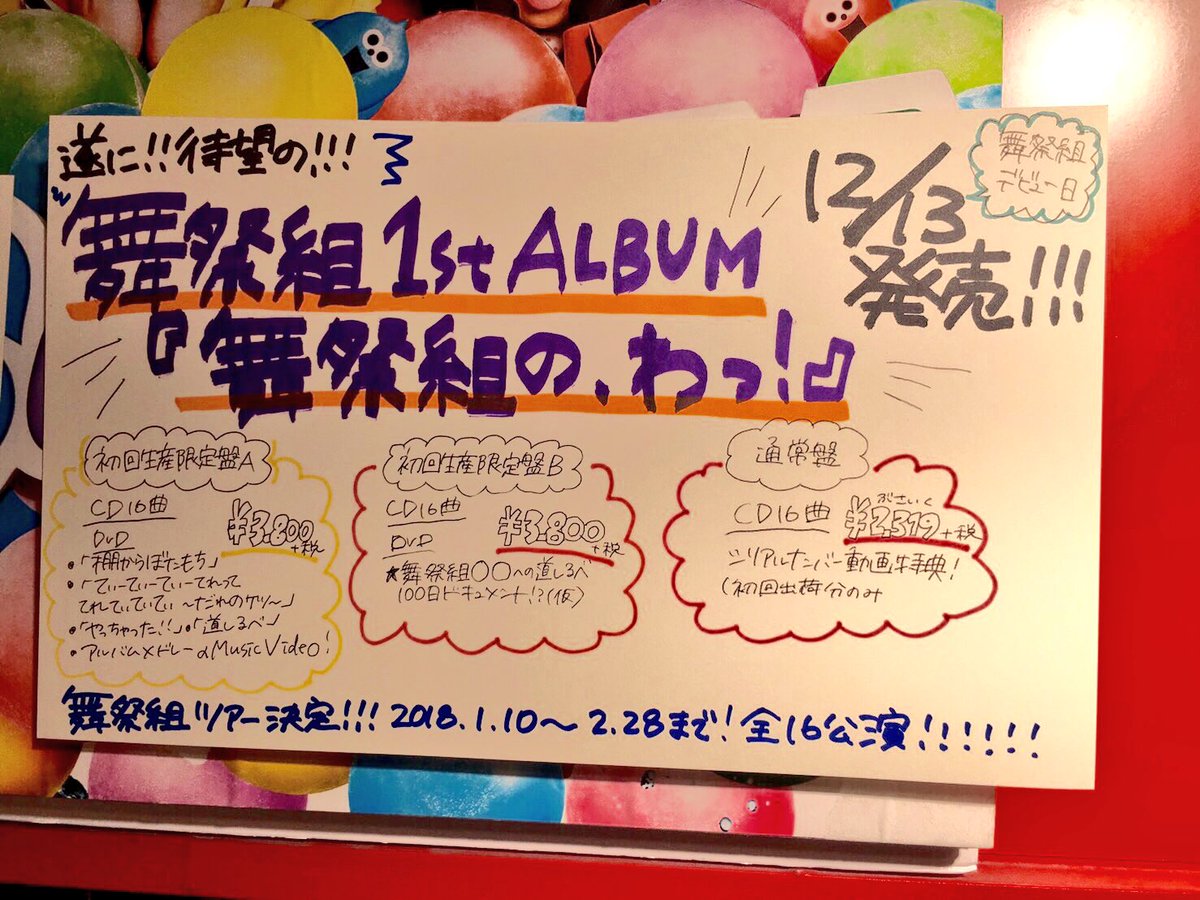 遂に!!待望の!!!
舞祭組1st ALBUM
『舞祭組の、わっ!』
12/13
発売!!!
舞祭組
デビュー日
初回生産限定盤A
CD16曲
¥3.800
+税
DVD
・「棚からぼたもち」
・「てぃーてぃーてぃーてれって
てれてぃてぃてぃ ~だれのケツ~」
・「やっちゃった!!」・「道しるべ」
・アルバムメドレーのMusic Video!
初回生産限定盤B
CD16曲
¥3.800
+税
DVD
★舞祭組○○への道しるべ
100日ドキュメント!?(仮)
通常盤
CD16曲
ぶさいく
¥2,319+税
シリアルナンバー動画特典!
(初回出荷分のみ
舞祭組ツアー決定!!! 2018.1.10~2.28まで!全16公演!!!!!!